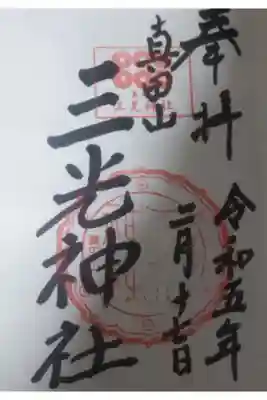 奉拝
令和五年
二月十七日
真田山
三光神社